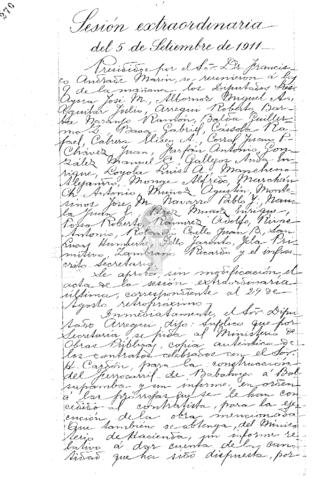 270
Sesión extraordinaria
del 5 de Setiembre de 1911.
Presidida por el Sr. Dr. Francis-
co Andrade Marín, se reunieron á las
9 de la mañana los Diputados Sres.
Ayora José M., Albornoz Miguel A.,
Aguilar Julio, Arregui Roberto, Bar-
Naranjo Ramón, Balda Guiller-
mo L., Baca Gabriel, Cassola Ra-
fael, Cabrera Alejo A., Coral Juan F.,
Chávez Juan, Antonio, Gon-
zález Manuel C., Gallegos Anda En-
rique, Loyola Luis A., Mancheno
Alejandro, Monge Alfredo, Merchán
Ch. Antonio, Muñoz Agustín, Monte-
sinos José M., Navarro Pablo J., Nau-
la Juan Muñoz Enrique
Posso Roberto, Ramírez Adolfo,
Antonio, Coello Juan B., San
Humberto, Jacinto, Isla Pri-
mitivo, Ricardo y el infras-
crito Secretario.
Se aprobó, sin modificación, el
acta de la sesión extraordinaria
última, correspondiente al 29 de
Agosto retropróximo.
Inmediatamente, el Sr. Dipu-
tado Arregui, dijo: "Suplico que por
Secretaría se pida al Ministerio de
Obras Públicas, copia auténtica de
los contratos celebrados con el Sor.
H. Carrión, para la construcción
del ferrocarril de Babahoyo á Bal-
sapamba y un informe, en orden
á las prórrogas que se le han con-
cedido al contratista, para la eje-
cución de la obra mencionada
Que también se obtenga, del Minis-
terio de Hacienda, un informe re-
lativo á dar cuenta de la can-
tidad que ha sido dispuesta, por